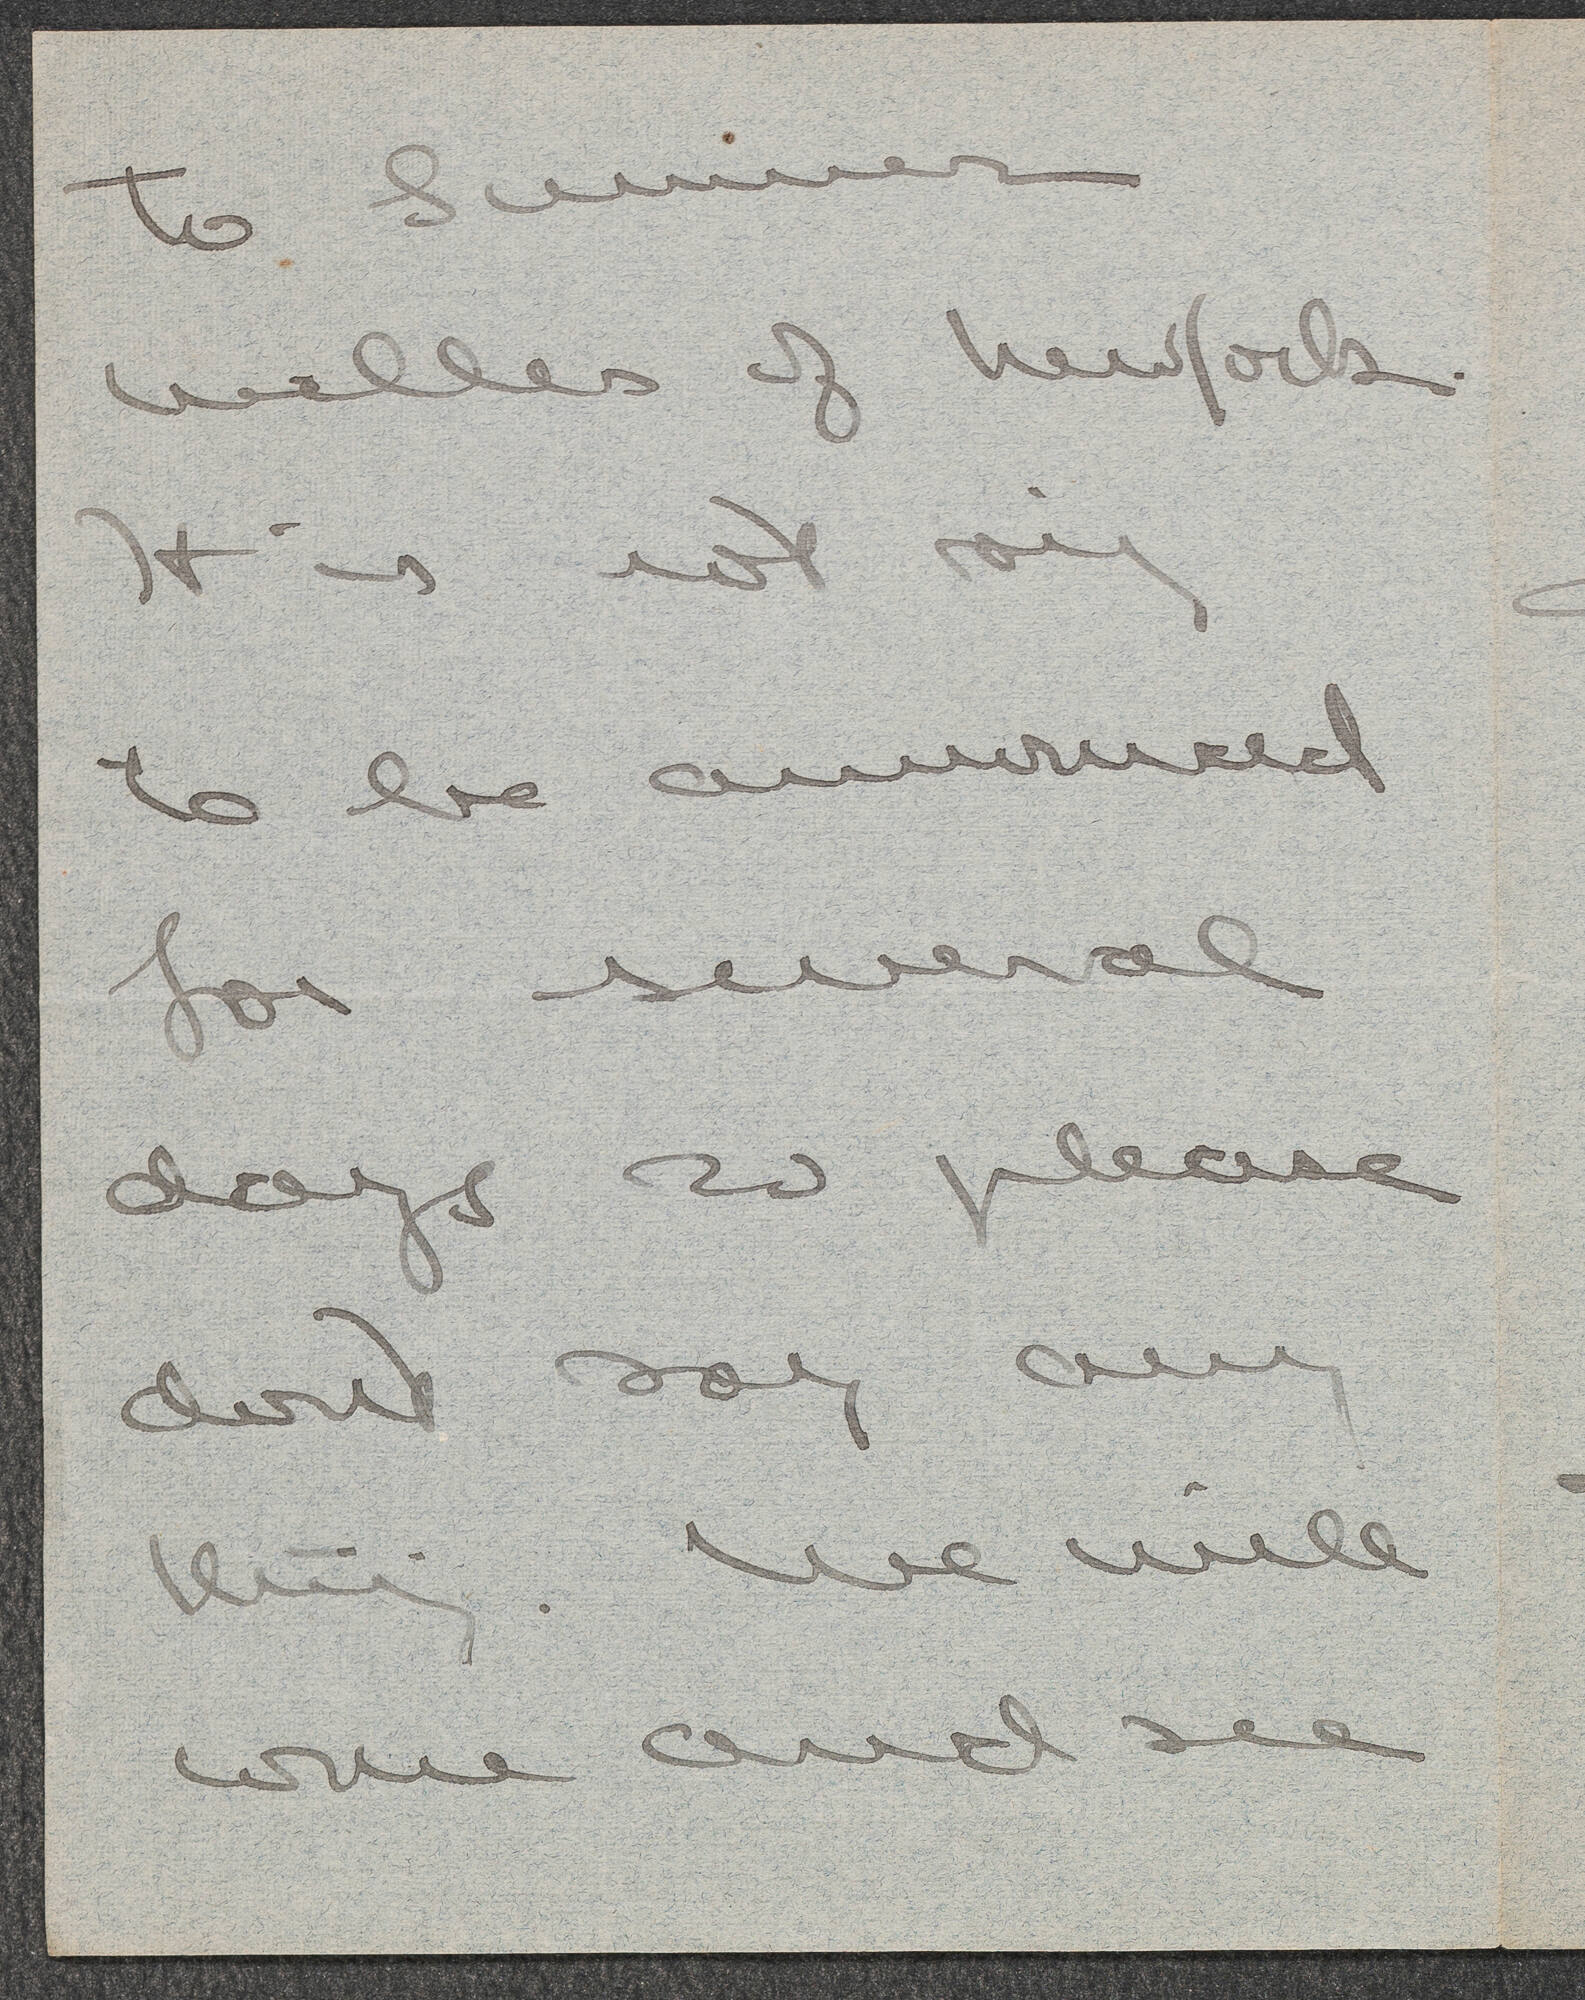 to Sumner
Welles of New York.
It is not
to be announced
for several
days so please
dont say any
thing. We will
come and see